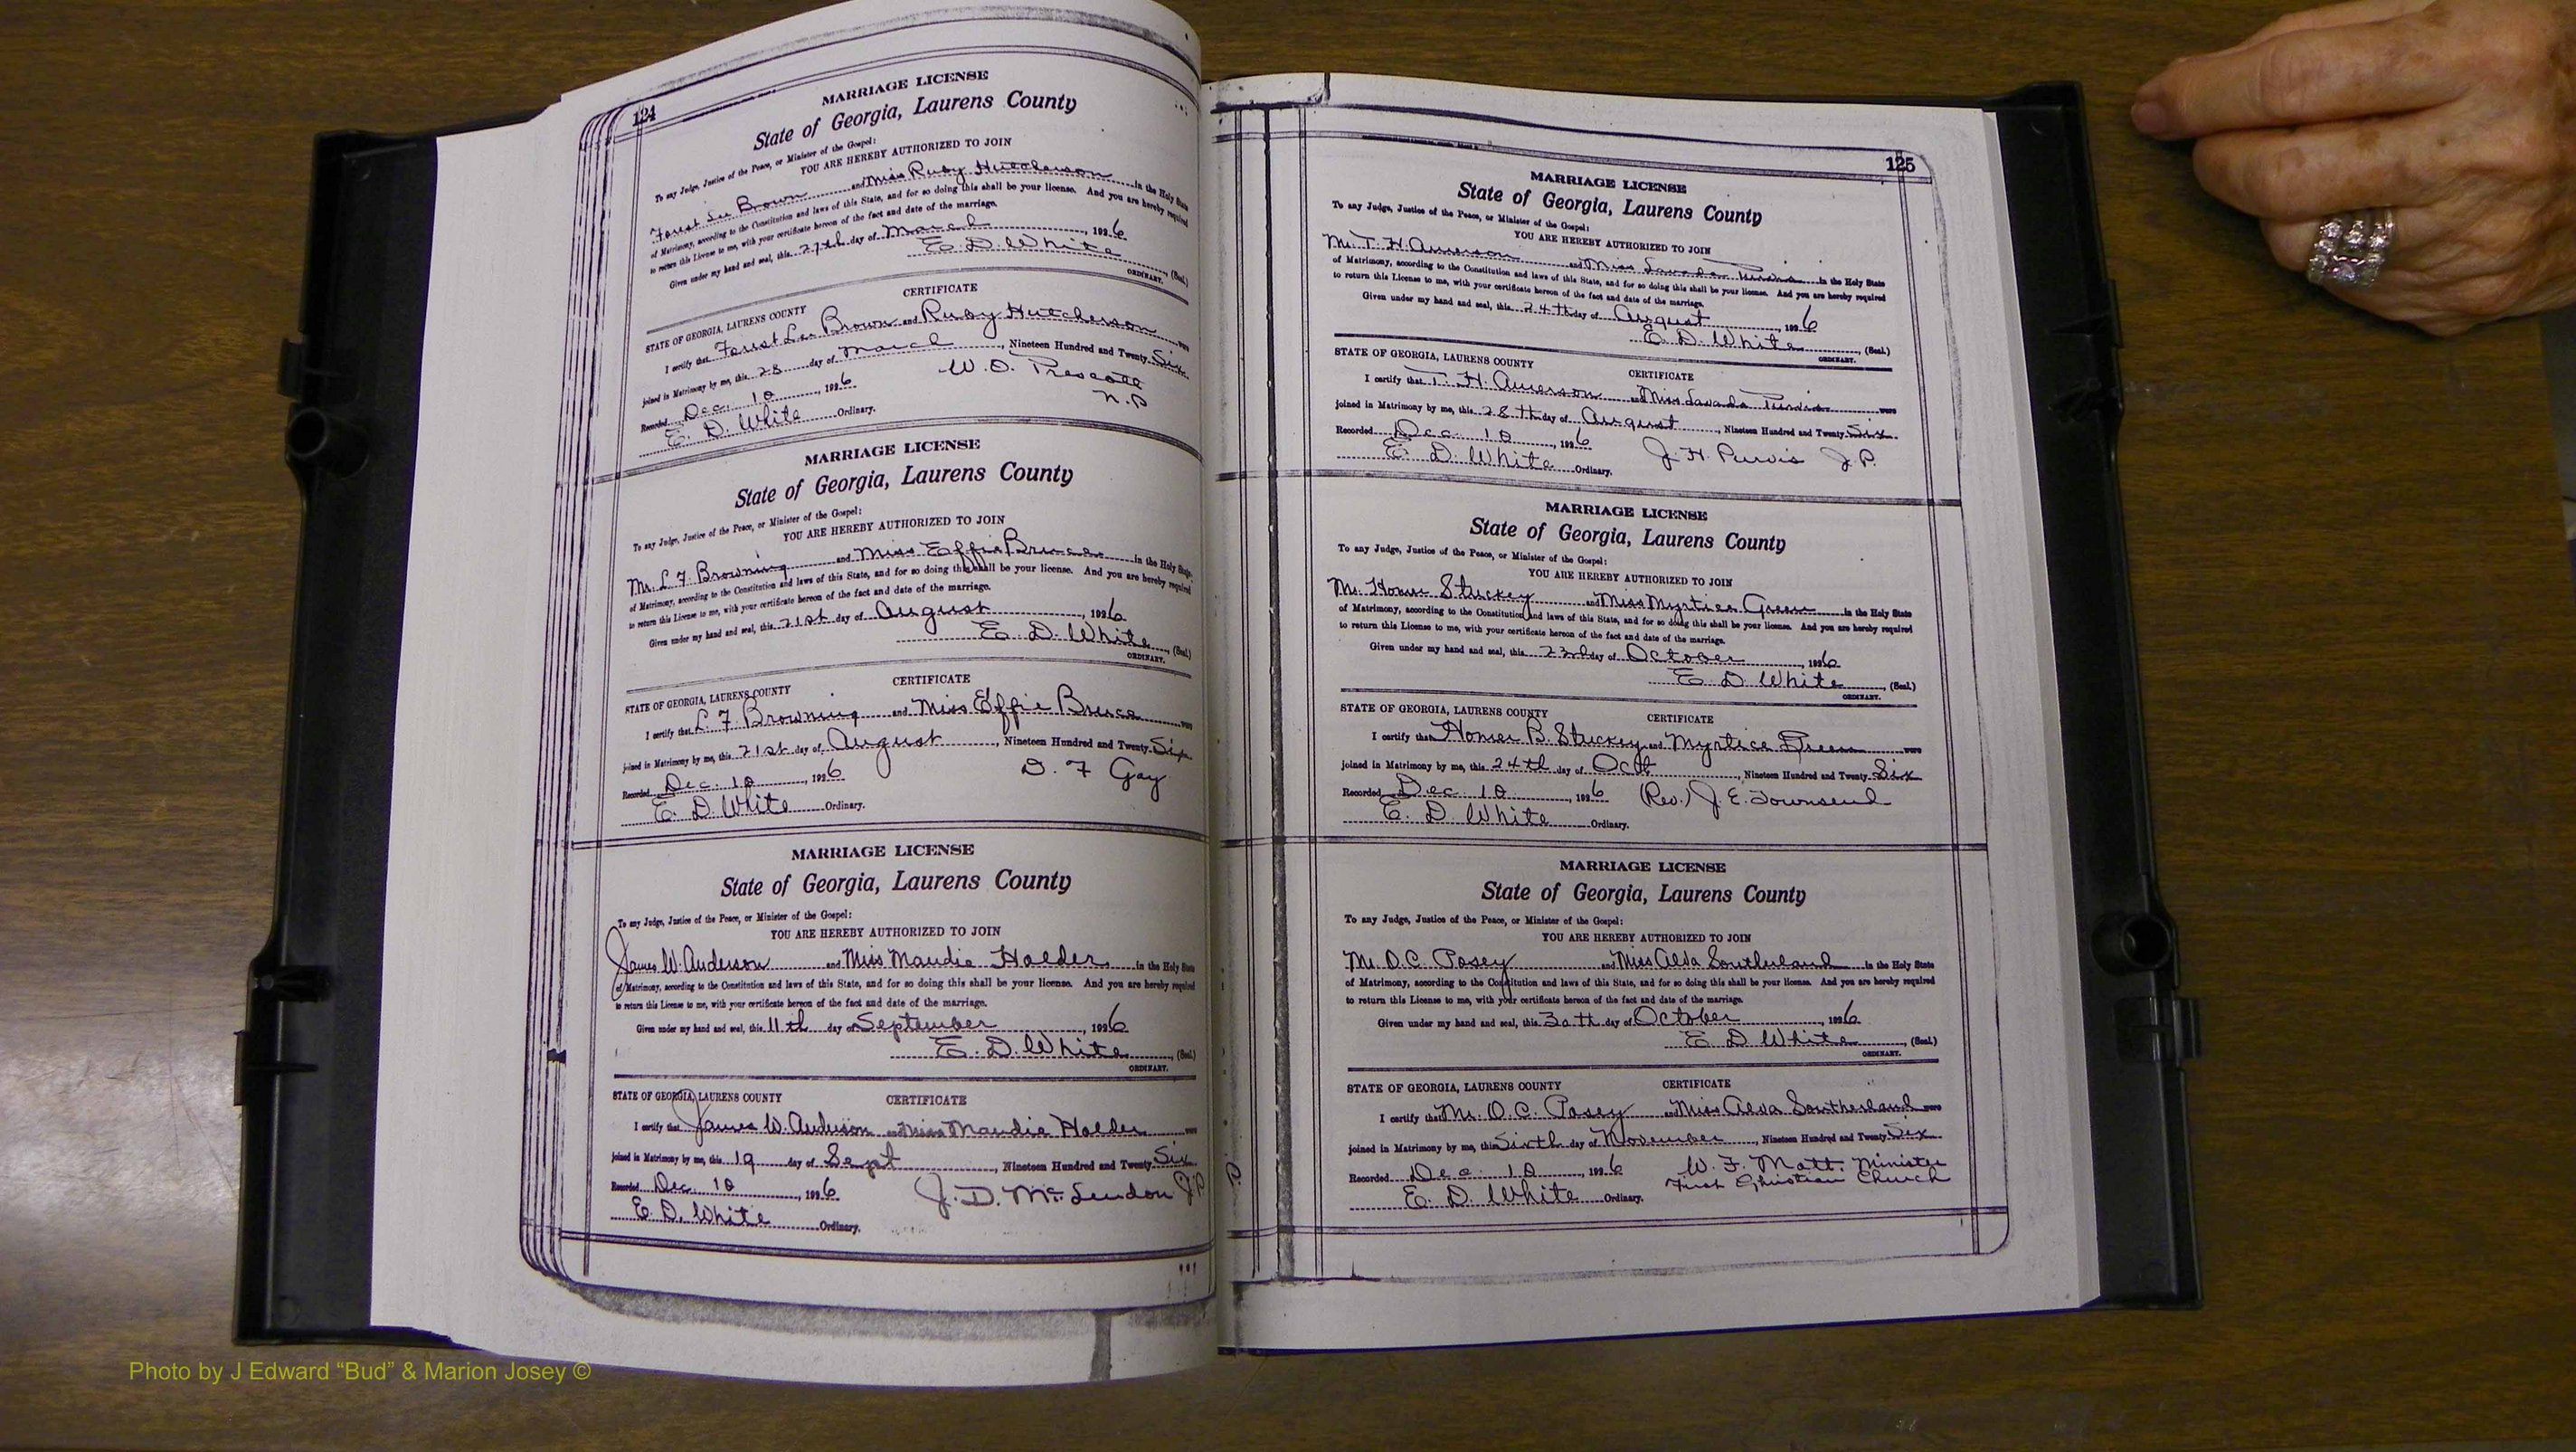 124
MARRIAGE LICENSE
State of Georgia, Laurens County
To any Judge, Justice of the Peace, or Minister of the Gospel:
YOU ARE HEREBY AUTHORIZED TO JOIN
Forest Lee Brown and Miss Ruby Hutcherson in the Holy State
of Matrimony, according to the Constitution and laws of this State, and for so doing this shall be your license. And you are hereby required
to return this License to me, with your certificate hereon of the fact and date of the marriage.
Given under my hand and seal, this 27th day of March, 1926
E. D. White (Seal)
ORDINARY.
CERTIFICATE
STATE OF GEORGIA, LAURENS COUNTY
I certify that Forest Lee Brown and Ruby Hutcherson were
joined in Matrimony by me, this 28 day of March, Nineteen Hundred and Twenty Six
Recorded Dec. 10, 1926 W. O. Prescott
E. D. White Ordinary. N.P
MARRIAGE LICENSE
State of Georgia, Laurens County
To any Judge, Justice of the Peace, or Minister of the Gospel:
YOU ARE HEREBY AUTHORIZED TO JOIN
Mr. L. F. Browning and Miss Effie Bruce in the Holy State
of Matrimony, according to the Constitution and laws of this State, and for so doing this shall be your license. And you are hereby required
to return this License to me, with your certificate hereon of the fact and date of the marriage.
Given under my hand and seal, this 21st day of August, 1926
E. D. White, (Seal)
ORDINARY.
CERTIFICATE
STATE OF GEORGIA, LAURENS COUNTY
I certify that L. F. Browning and Miss Effie Bruce were
joined in Matrimony by me, this 21st day of August, Nineteen Hundred and Twenty Six
Recorded Dec. 10, 1926 D. F Gay
E. D. White Ordinary.
MARRIAGE LICENSE
State of Georgia, Laurens County
To any Judge, Justice of the Peace, or Minister of the Gospel:
YOU ARE HEREBY AUTHORIZED TO JOIN
James W. Anderson and Miss Maudie Holder in the Holy State
of Matrimony, according to the Constitution and laws of this State, and for so doing this shall be your license. And you are hereby required
to return this License to me, with your certificate hereon of the fact and date of the marriage.
Given under my hand and seal, this 11th day of September, 1926
E. D. White, (Seal)
ORDINARY.
STATE OF GEORGIA, LAURENS COUNTY CERTIFICATE
I certify that James W. Anderson and Miss Maudie Holder were
joined in Matrimony by me, this 19 day of Sept, Nineteen Hundred and Twenty Six
Recorded Dec. 10, 1926 J. D. McLendon J.P
E. D. White Ordinary.
125
MARRIAGE LICENSE
State of Georgia, Laurens County
To any Judge, Justice of the Peace, or Minister of the Gospel:
YOU ARE HEREBY AUTHORIZED TO JOIN
Mr. T. H. Amerson and Miss Lavada in the Holy State
of Matrimony, according to the Constitution and laws of this State, and for so doing this shall be your license. And you are hereby required
to return this License to me, with your certificate hereon of the fact and date of the marriage.
Given under my hand and seal, this 24th day of August, 1926
E. D. White, (Seal)
ORDINARY.
STATE OF GEORGIA, LAURENS COUNTY
CERTIFICATE
I certify that T. H. Amerson and Miss Lavada were
joined in Matrimony by me, this 28th day of August, Nineteen Hundred and Twenty Six
Recorded Dec. 10, 1926 J. H. Purvis J.P.
E. D. White Ordinary.
MARRIAGE LICENSE
State of Georgia, Laurens County
To any Judge, Justice of the Peace, or Minister of the Gospel:
YOU ARE HEREBY AUTHORIZED TO JOIN
Mr. Homer Stuckey and Miss Myrtice Green in the Holy State
of Matrimony, according to the Constitution and laws of this State, and for so doing this shall be your license. And you are hereby required
to return this License to me, with your certificate hereon of the fact and date of the marriage.
Given under my hand and seal, this 23rd day of October, 1926
E. D. White, (Seal)
ORDINARY.
STATE OF GEORGIA, LAURENS COUNTY CERTIFICATE
I certify that Homer B. Stuckey and Myrtice Green were
joined in Matrimony by me, this 24th day of Oct, Nineteen Hundred and Twenty Six
Recorded Dec 10, 1926 (Rev.) J. E. Townsend
E. D. White Ordinary.
MARRIAGE LICENSE
State of Georgia, Laurens County
To any Judge, Justice of the Peace, or Minister of the Gospel:
YOU ARE HEREBY AUTHORIZED TO JOIN
Mr. O. C. Posey and Miss Alva Southerland in the Holy State
of Matrimony, according to the Constitution and laws of this State, and for so doing this shall be your license. And you are hereby required
to return this License to me, with your certificate hereon of the fact and date of the marriage.
Given under my hand and seal, this 30th day of October, 1926
E. D. White, (Seal)
ORDINARY.
STATE OF GEORGIA, LAURENS COUNTY CERTIFICATE
I certify that Mr. O. C. Posey and Miss Alva Southerland were
joined in Matrimony by me, this Sixth day of November, Nineteen Hundred and Twenty Six
Recorded Dec. 10, 1926 W. F. Mott. Minister
First Christian Church
E. D. White Ordinary.
Photo by J Edward “Bud” & Marion Josey ©